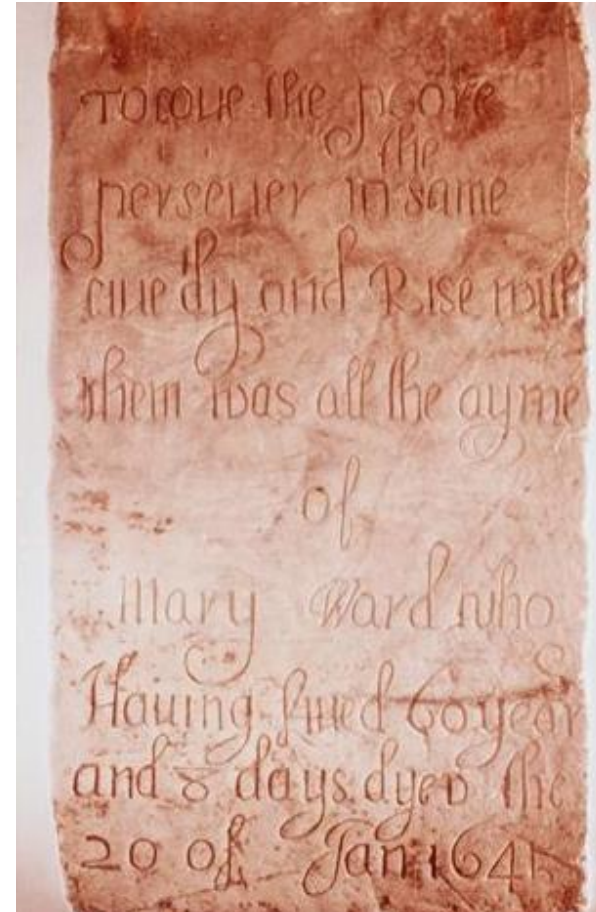 To loue the poore
the
perseuer in same
liue dy and Rise with
them was all the ayme
of
Mary Ward who
Hauing liued 60 year
and 8 days dyed the
20 of Jan 1641